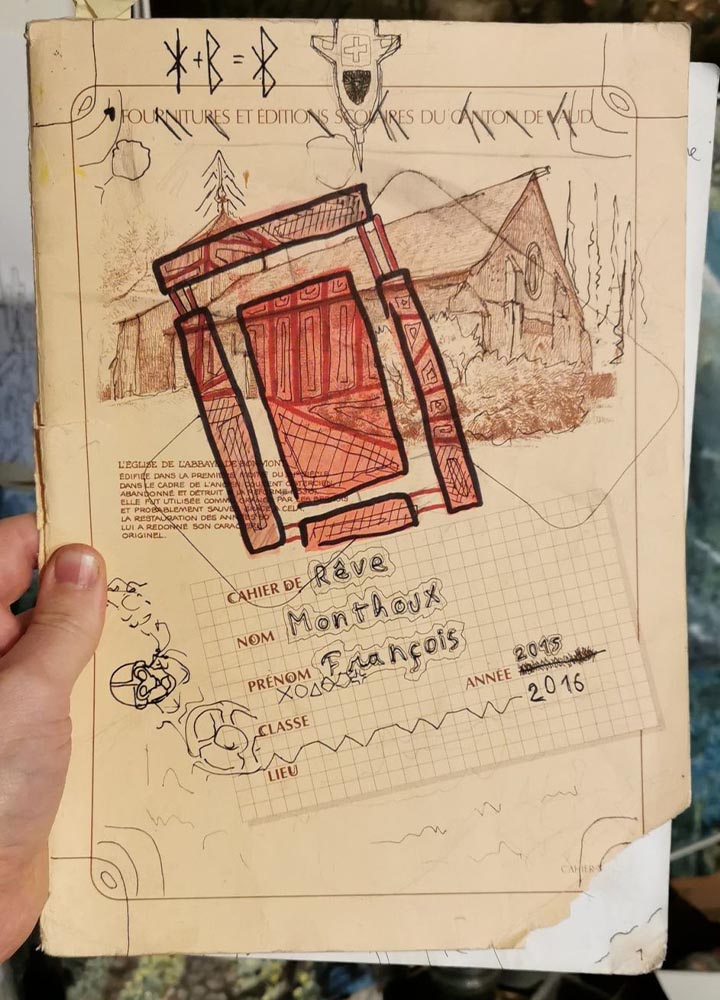 FOURNITURES ET ÉDITIONS SCOLAIRES DU CANTON DE VAUD
L'ÉGLISE DE L'ABBAYE DE BONMONT
ÉDIFIÉE DANS LA PREMIÈRE DU
DANS LE CADRE DE L'ANCIEN COUVENT CISTERCIEN
ABANDONNÉ ET DÉTRUIT LA RÉFORME
ELLE FUT UTILISÉE COMME PAR
ET PROBABLEMENT SAUVÉE GRÂCE À CELA.
LA RESTAURATION DES
LUI A REDONNÉ SON CARACTÈRE
ORIGINEL.
CAHIER DE Rêve
NOM Monthoux
PRÉNOM François
ANNÉE 2015
2016
CLASSE
LIEU
CAHIER